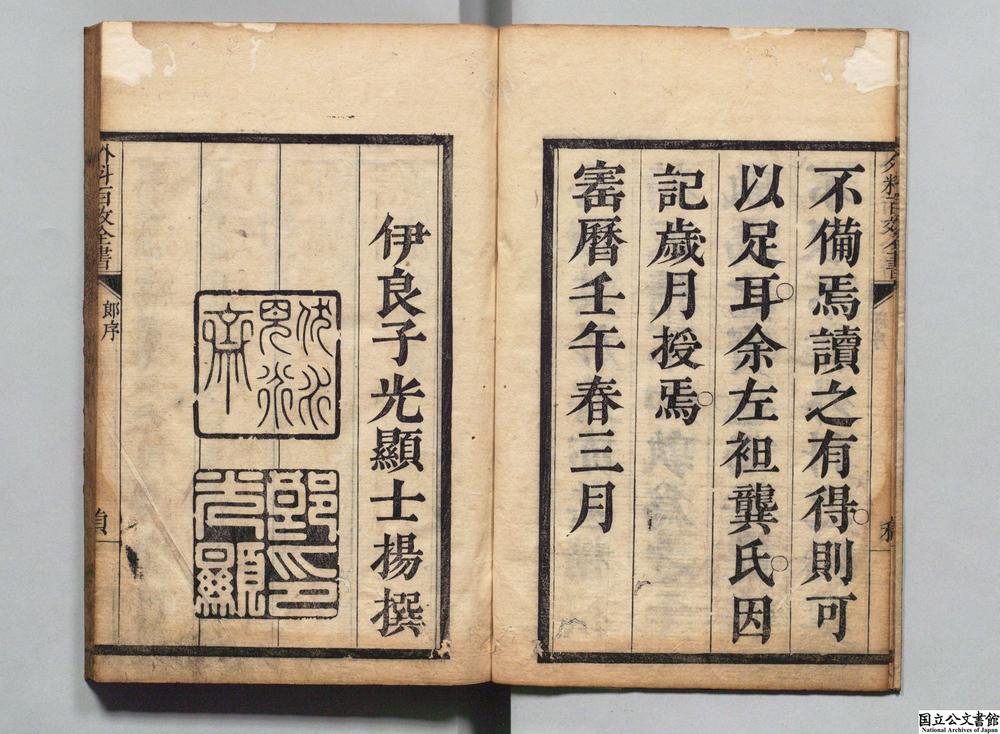 不備焉讀之有得則可
以足耳余左袒龔氏因
記歲月授焉
寳曆壬午春三月
伊良子光顯士揚撰
郎序
国立公文書館
National Archives of Japan